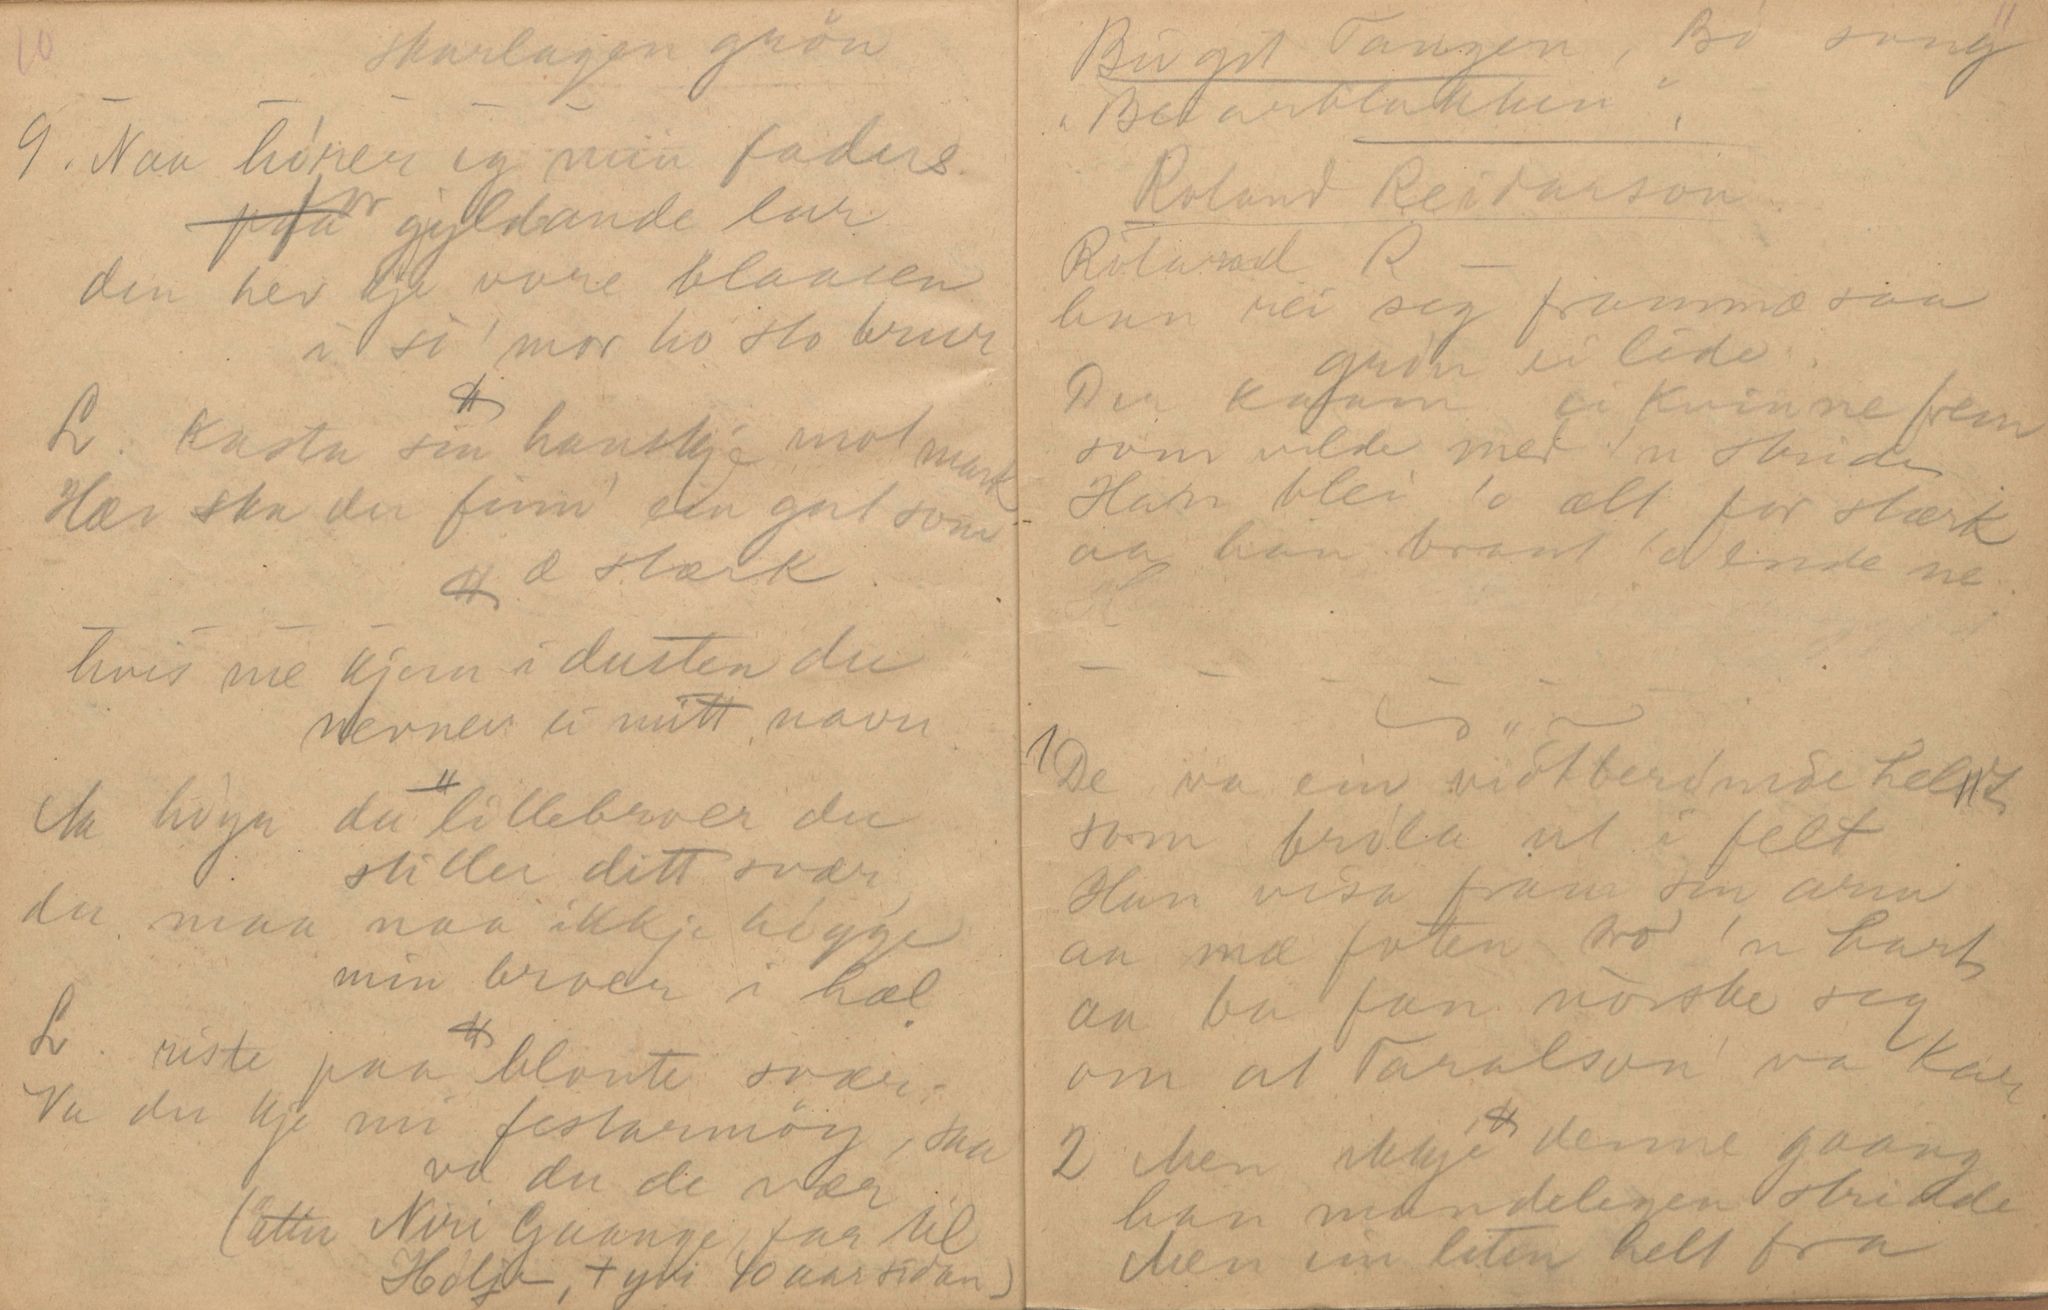 10
skarlagen grön
9. Naa hörer eg min faders
paa or gyldande lur
den hev kje vore blaasen
i si' mor ho sto brur
L. kasta sin hanskje mot mark
Hær ska du finn' ein gut som
æ stærk
hvis me kjem i dusten du
nevner ei mitt navn
Aa höyr du lillebroer du
stiller ditt svær,
du maa naa ikkje högge
min broer i hæl.
L. riste paa blonte svær.
Va du kje mi festarmöy, saa
va du de vær
(etter Niri Gaange, far til
Hölje, + yvi 40 aar sidan)
11
Birgit Tangen, Bö song
"Beiarblakken".
Roland Reidarson.
Roland R —
han rei seg frammæ saa
grön ei lide.
Der kaam ei kvinne frem
som vilde med 'n stride
Han blei 'o alt for stærk
aa han brant 'a ende ne
1 De va ein vidtberömde helt
som bröla ut i felt
Han visa fram sin arm
aa mæ foten tro 'n hart
aa ba fan nörske seg
om at Taralson va kar
2 Men ikkje denne gaang
han mandelegen stridde
Men ein liten helt fra